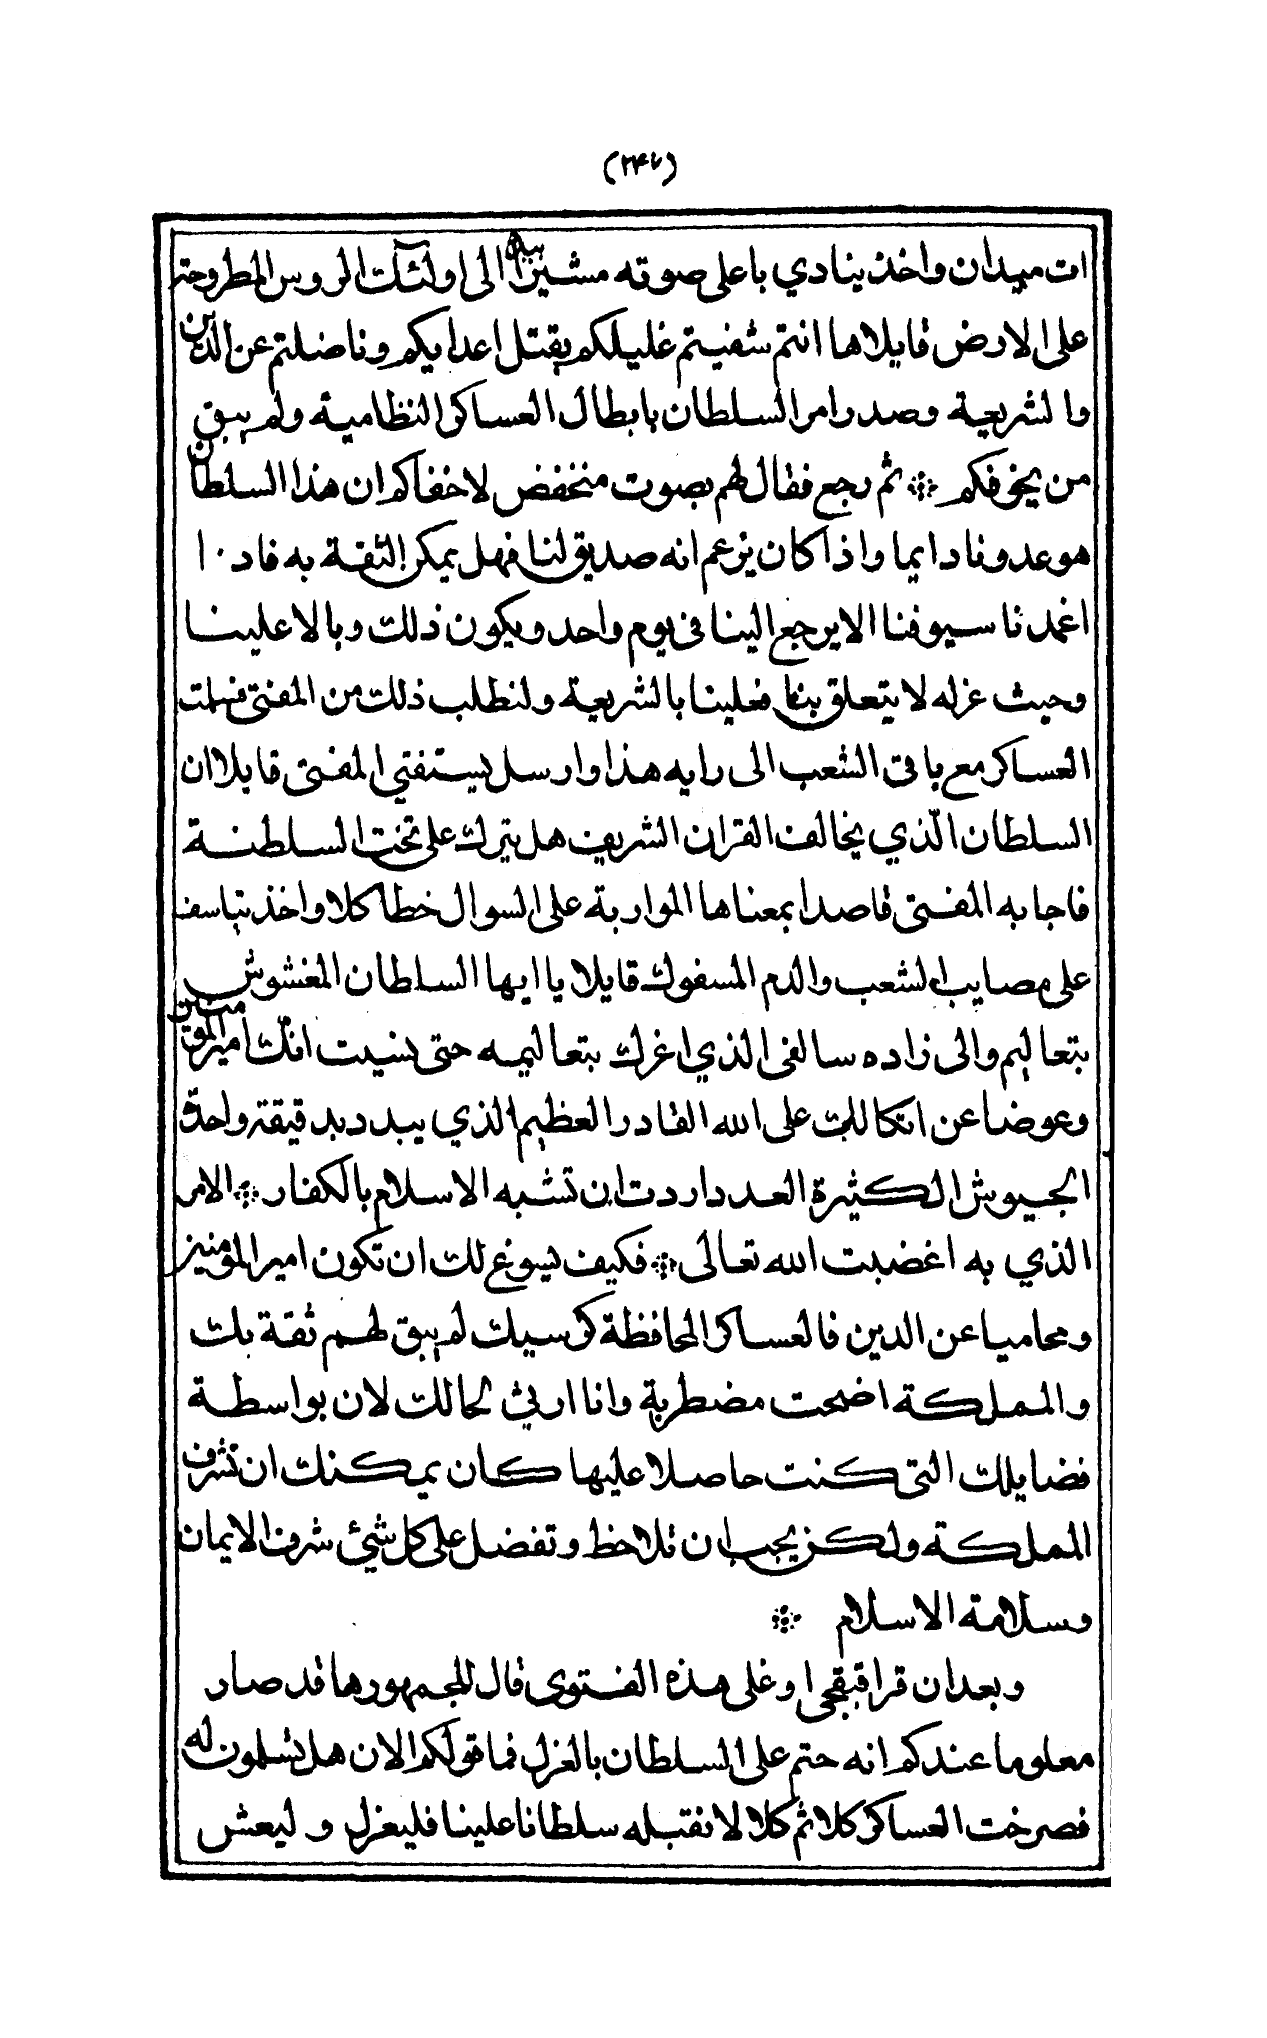 (٢٤٧)
ات ميدان واخذ ينادي باعلى صوته مشيرا بيده الى اولئك الروس المطروحة
على الارض قايلا ها انتم شفيتم غليلكم بقتل اعدايكم وناضلتم عن الدين
والشريعية وصدر امر السلطان بابطال العساكر النظامية ولم يبق
من يخوفكم ۞ ثم رجع فقال لهم بصوت منخفض لا خفاكم ان هذا السلطان
هو عدونا دايما واذا كان يزعم انه صديق لنا فهل يمكن الثقة به فاد٠ا
اغمدنا سيوفنا الا يرجع الينا فى يوم واحد ويكون ذلك وبالا علينا
وحيث عزله لا يتعلق بنا فعلينا بالشريعية ولنطلب ذلك من المفتى فسلمت
العساكر مع باقى الشعب الى رايه هذا وارسل يستفتي المفتى قايلا ان
السلطان الّذي يخالف القران الشريف هل يترك على تخت السلطنة
فاجابه المفتى قاصدا بمعناها المواربة على السوال خطا كلا واخذ يتاسف
على مصايب الشعب والدم المسفوك قايلا يا ايها السلطان المغشوش
بتعاليم والى زاده سالفى الذي اغرك بتعاليمه حتى نسيت انّك امير المومنين
وعوضا عن اتكالك على الله القادر العظيم الذي يبدد بدقيقة واحدة
الجيوش الكثيرة العدد اردت ان تشبه الاسلام بالكفار ۞ الامر
الذي به اغضبت الله تعالى ۞ فكيف يسوغ لك ان تكون امير المومنين
ومحاميا عن الدين فالعساكر المحافظة كرسيك لم يبق لهم ثقة بك
والمملكة اضحت مضطربة وانا ارثي لحالك لان بواسطة
فضايلك التى كنت حاصلا عليها كان يمكنك ان تشرف
المملكة ولكن يجب ان تلاحظ وتفضل على كل شيئ شرف الايمان
وسلامة الاسلام ۞
وبعد ان قرا قبقجى اوغلى هذه الفتوى قال للجمهور ها قد صار
معلوما عندكم انه حتم على السلطان بالعزل فما قولكم الان هل تسلمون له
فصرخت العساكر كلا ثم كلا لا نقبله سلطانا علينا فليعزل وليعش